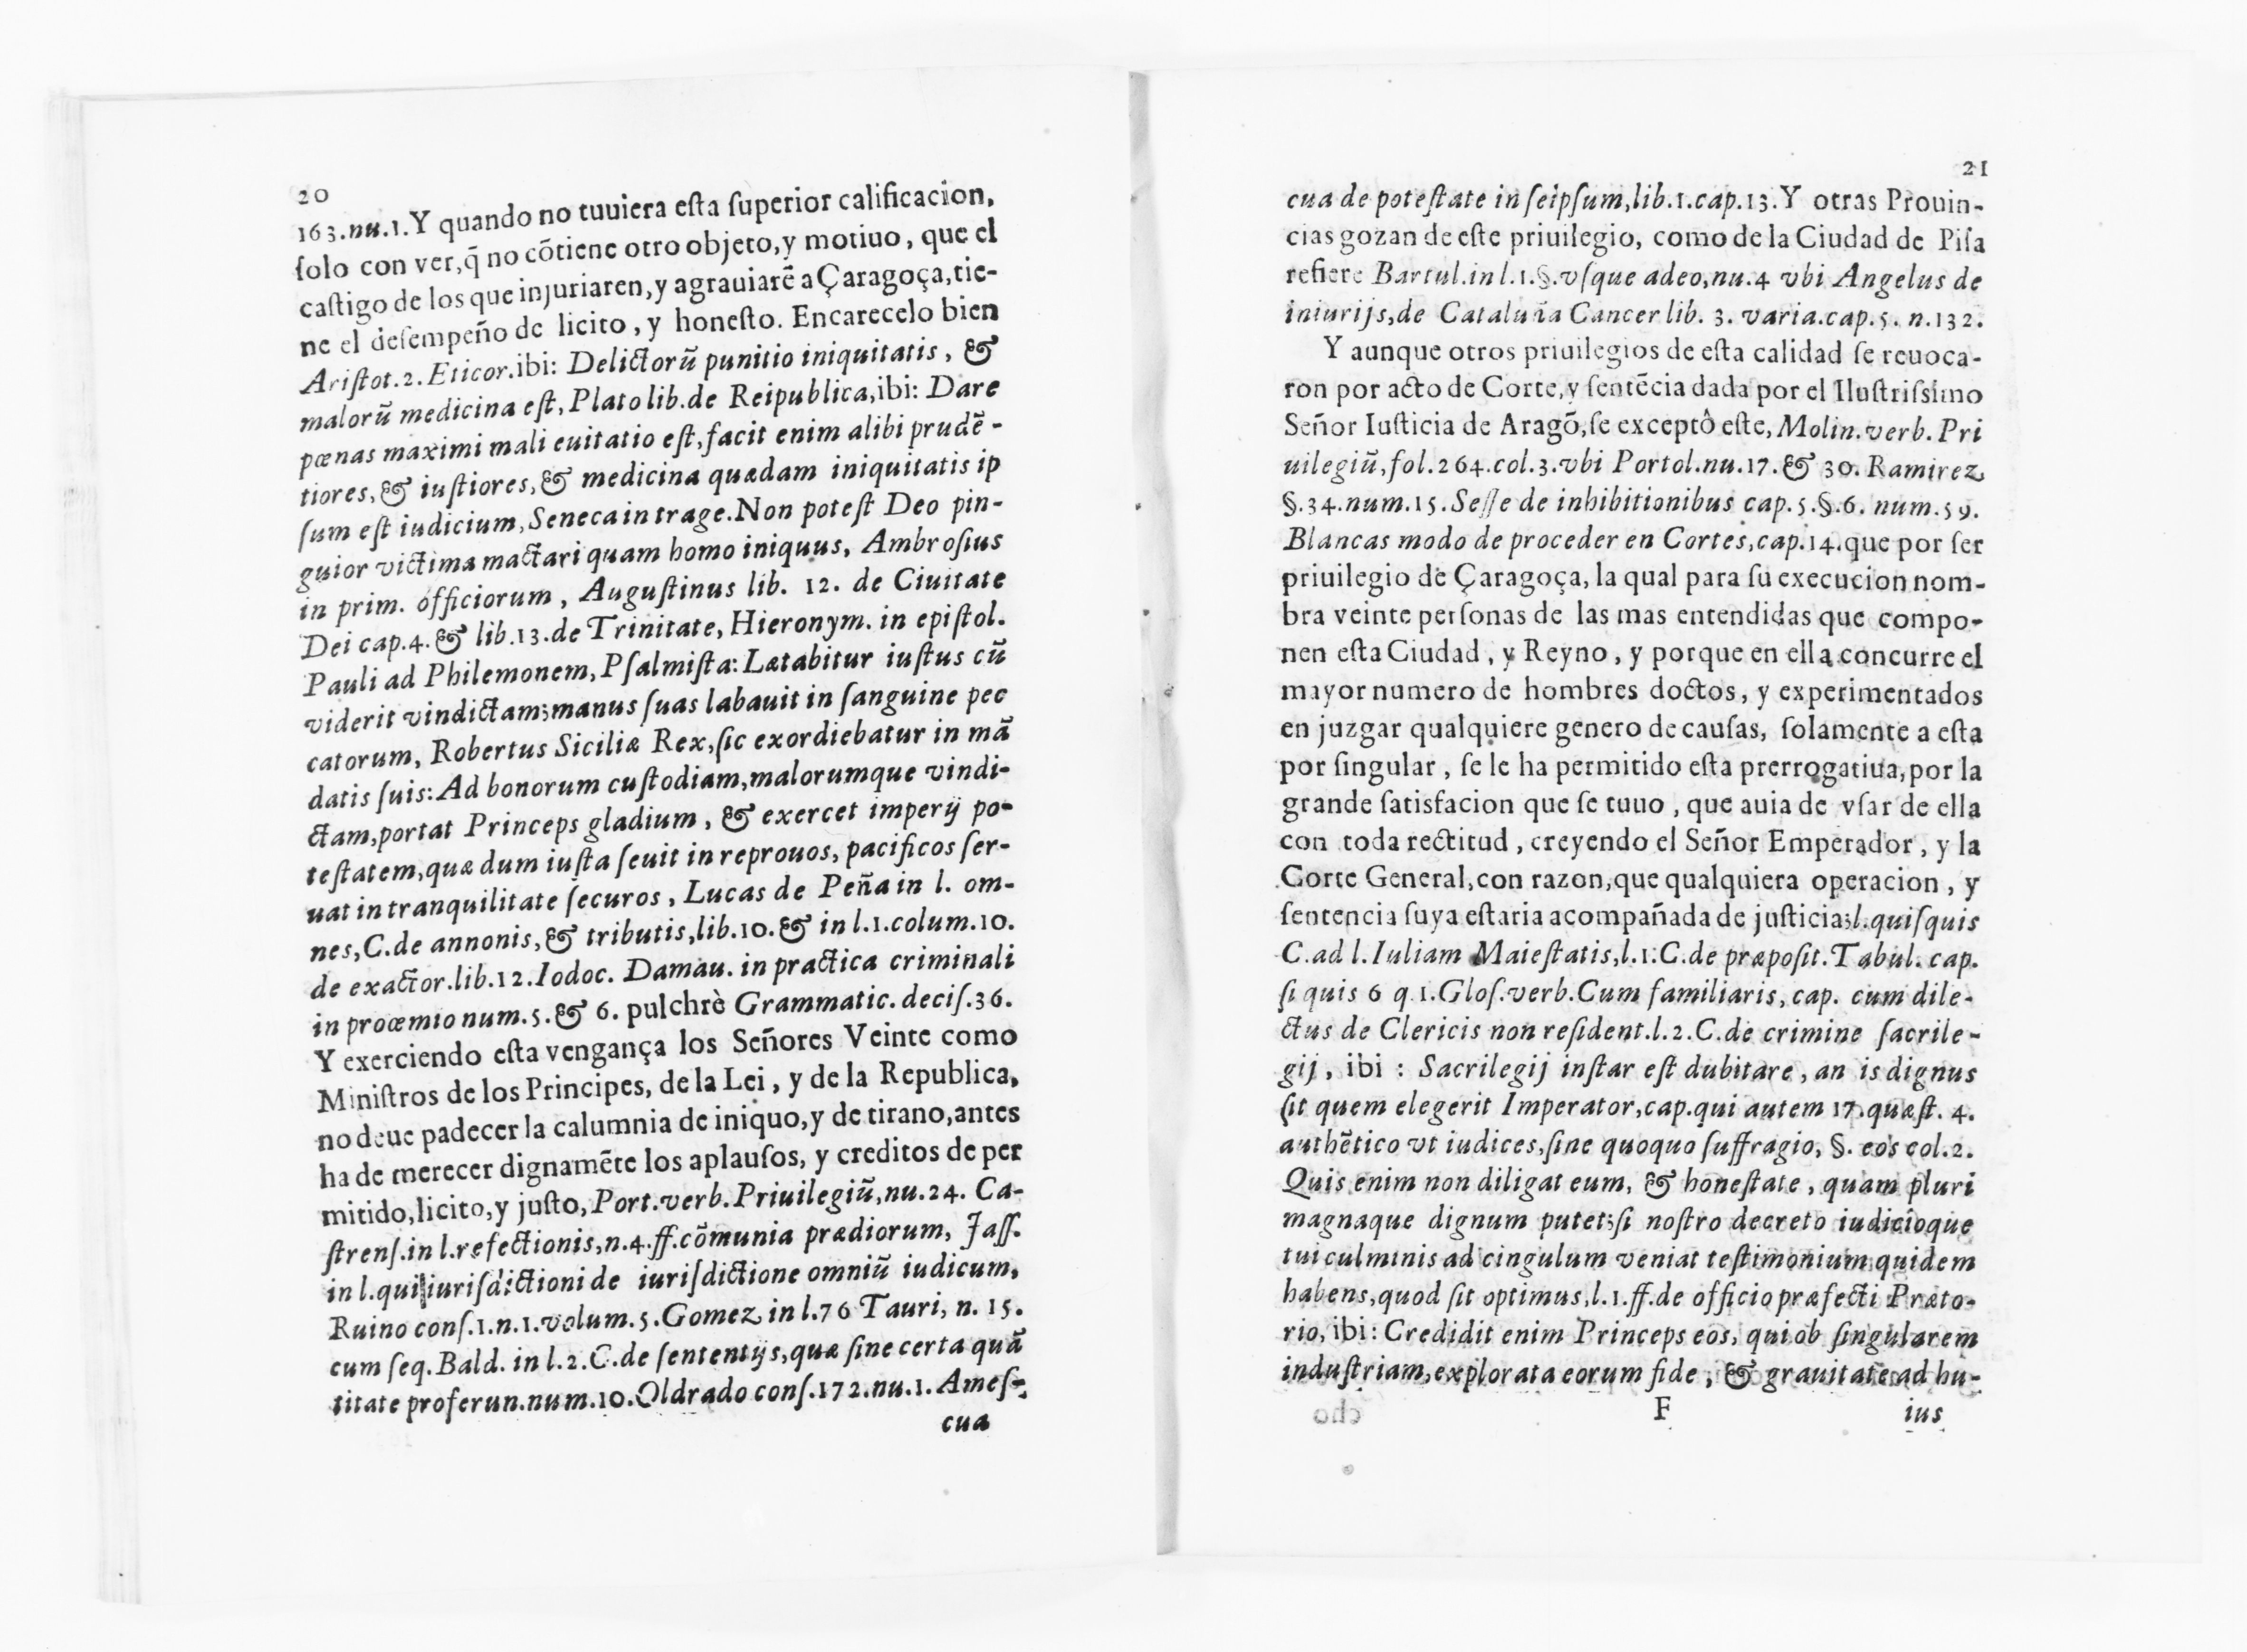 20
163.nu.1.Y quando no tuuiera eſta ſuperior calificacion,
ſolo con ver,q̃ no cõtiene otro objeto,y motiuo, que el
caſtigo de los que injuriaren,y agrauiarẽ a Çaragoça,tie-
ne el deſempeño de licito, y honeſto. Encarecelo bien
Ariſtot.2.Eticor.ibi: Delictorũ punitio iniquitatis, &
malorũ medicina eſt, Plato lib.de Reipublica,ibi: Dare
pœnas maximi mali euitatio eſt,facit enim alibi prudẽ-
tiores,& iuſtiores,& medicina quædam iniquitatis ip
ſum eſt iudicium, Seneca in trage.Non poteſt Deo pin-
guior victima mactari quam homo iniquus, Ambroſius
in prim. officiorum, Auguſtinus lib. 12. de Ciuitate
Dei cap.4.& lib.13.de Trinitate, Hieronym. in epiſtol.
Pauli ad Philemonem, Pſalmiſta: Lætabitur iuſtus cũ
viderit vindictam;manus ſuas labauit in ſanguine pec
catorum, Robertus Siciliæ Rex,ſic exordiebatur in mã
datis ſuis: Ad bonorum cuſtodiam,malorumque vindi-
ctam,portat Princeps gladium, & exercet imperij po-
teſtatem,quæ dum iuſta ſeuit in reprouos, pacificos ſer-
uat in tranquilitate ſecuros, Lucas de Peña in l. om-
nes,C.de annonis,& tributis,lib.10.& in l.1.colum.10.
de exactor.lib.12.Iodoc. Damau. in practica criminali
in proœmio num.5.& 6. pulchrè Grammatic. deciſ.36.
Y exerciendo eſta vengança los Señores Veinte como
Miniſtros de los Principes, de la Lei, y de la Republica,
no deue padecer la calumnia de iniquo,y de tirano,antes
ha de merecer dignamẽte los aplauſos, y creditos de per
mitido,licito,y juſto, Port.verb.Priuilegiũ,nu.24. Ca-
ſtrenſ.in l.refectionis,n.4.ff.cõmunia prædiorum, Jaſſ.
in l.qui iuriſdictioni de iuriſdictione omniũ iudicum,
Ruino conſ.1.n.1.volum.5.Gomez in l.76 Tauri, n. 15.
cum ſeq. Bald. in l.2.C.de ſententijs,quæ ſine certa quã
titate proferun.num.10.Oldrado conſ.172.nu.1. Ameſ-
cua
21
cua de poteſtate in ſeipſum,lib.1.cap.13.Y otras Prouin-
cias gozan de eſte priuilegio, como de la Ciudad de Piſa
refiere Bartul.in l.1.§.vſque adeo,nu.4 vbi Angelus de
iniurijs,de Cataluña Cancer lib. 3. varia.cap.5. n.132.
Y aunque otros priuilegios de eſta calidad ſe reuoca-
ron por acto de Corte,y ſentẽcia dada por el Iluſtriſsimo
Señor Iuſticia de Aragõ,ſe exceptô eſte, Molin.verb. Pri
uilegiũ,fol.264.col.3.vbi Portol.nu.17.& 30. Ramirez
§.34.num.15.Seſſe de inhibitionibus cap.5.§.6. num.59.
Blancas modo de proceder en Cortes,cap.14.que por ſer
priuilegio de Çaragoça, la qual para ſu execucion nom-
bra veinte perſonas de las mas entendidas que compo-
nen eſta Ciudad, y Reyno, y porque en ella concurre el
mayor numero de hombres doctos, y experimentados
en juzgar qualquiere genero de cauſas, ſolamente a eſta
por ſingular, ſe le ha permitido eſta prerrogatiua,por la
grande ſatisfacion que ſe tuuo, que auia de vſar de ella
con toda rectitud, creyendo el Señor Emperador, y la
Corte General,con razon,que qualquiera operacion, y
ſentencia ſuya eſtaria acompañada de juſticia;l.quiſquis
C.ad l. Iuliam Maieſtatis,l.1.C.de præpoſit.Tabul. cap.
ſi quis 6 q 1.Gloſ.verb.Cum familiaris, cap. cum dile-
ctus de Clericis non reſident.l.2.C.de crimine ſacrile-
gij, ibi: Sacrilegij inſtar eſt dubitare, an is dignus
ſit quem elegerit Imperator,cap.qui autem 17.quæſt. 4.
authẽtico vt iudices,ſine quoquo ſuffragio, §. eos col.2.
Quis enim non diligat eum, & honeſtate, quam pluri
magnaque dignum putet;ſi noſtro decreto iudicioque
tui culminis ad cingulum veniat teſtimonium quidem
habens,quod ſit optimus,l.1.ff.de officio præfecti Præto-
rio, ibi: Credidit enim Princeps eos, qui ob ſingularem
induſtriam,explorata eorum fide, & grauitate ad hu-
F
ius